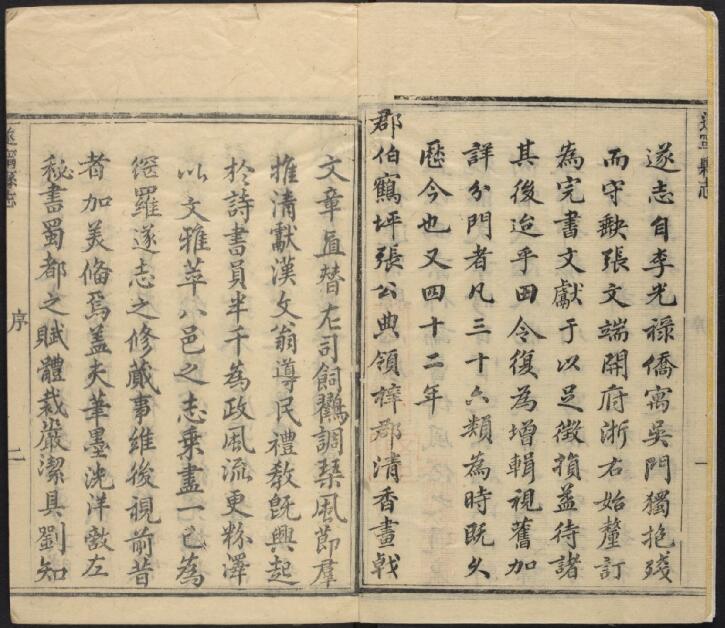 遂寧縣志
一
遂志自李光祿僑寓吳門獨抱殘
而守缺張文端開府浙右始釐訂
為完書文獻于以足徵損益待諸
其後迨乎田令復為增輯視舊加
詳分門者凡三十六類為時既久
歷今也又四十二年
郡伯鶴坪張公典領梓郡清香畫戟
文章直替左司飼鸛調琴風節羣
推清獻漢文翁導民禮教旣興起
於詩書員半千為政風流更粉澤
以文雅萃八邑之志乗盡一己為
網羅遂志之修蕆事維後視前昔
者加美備焉盖夫筆墨洸洋敵左
秘書蜀都之賦體裁嚴潔具劉知
遂寧縣志
序
二